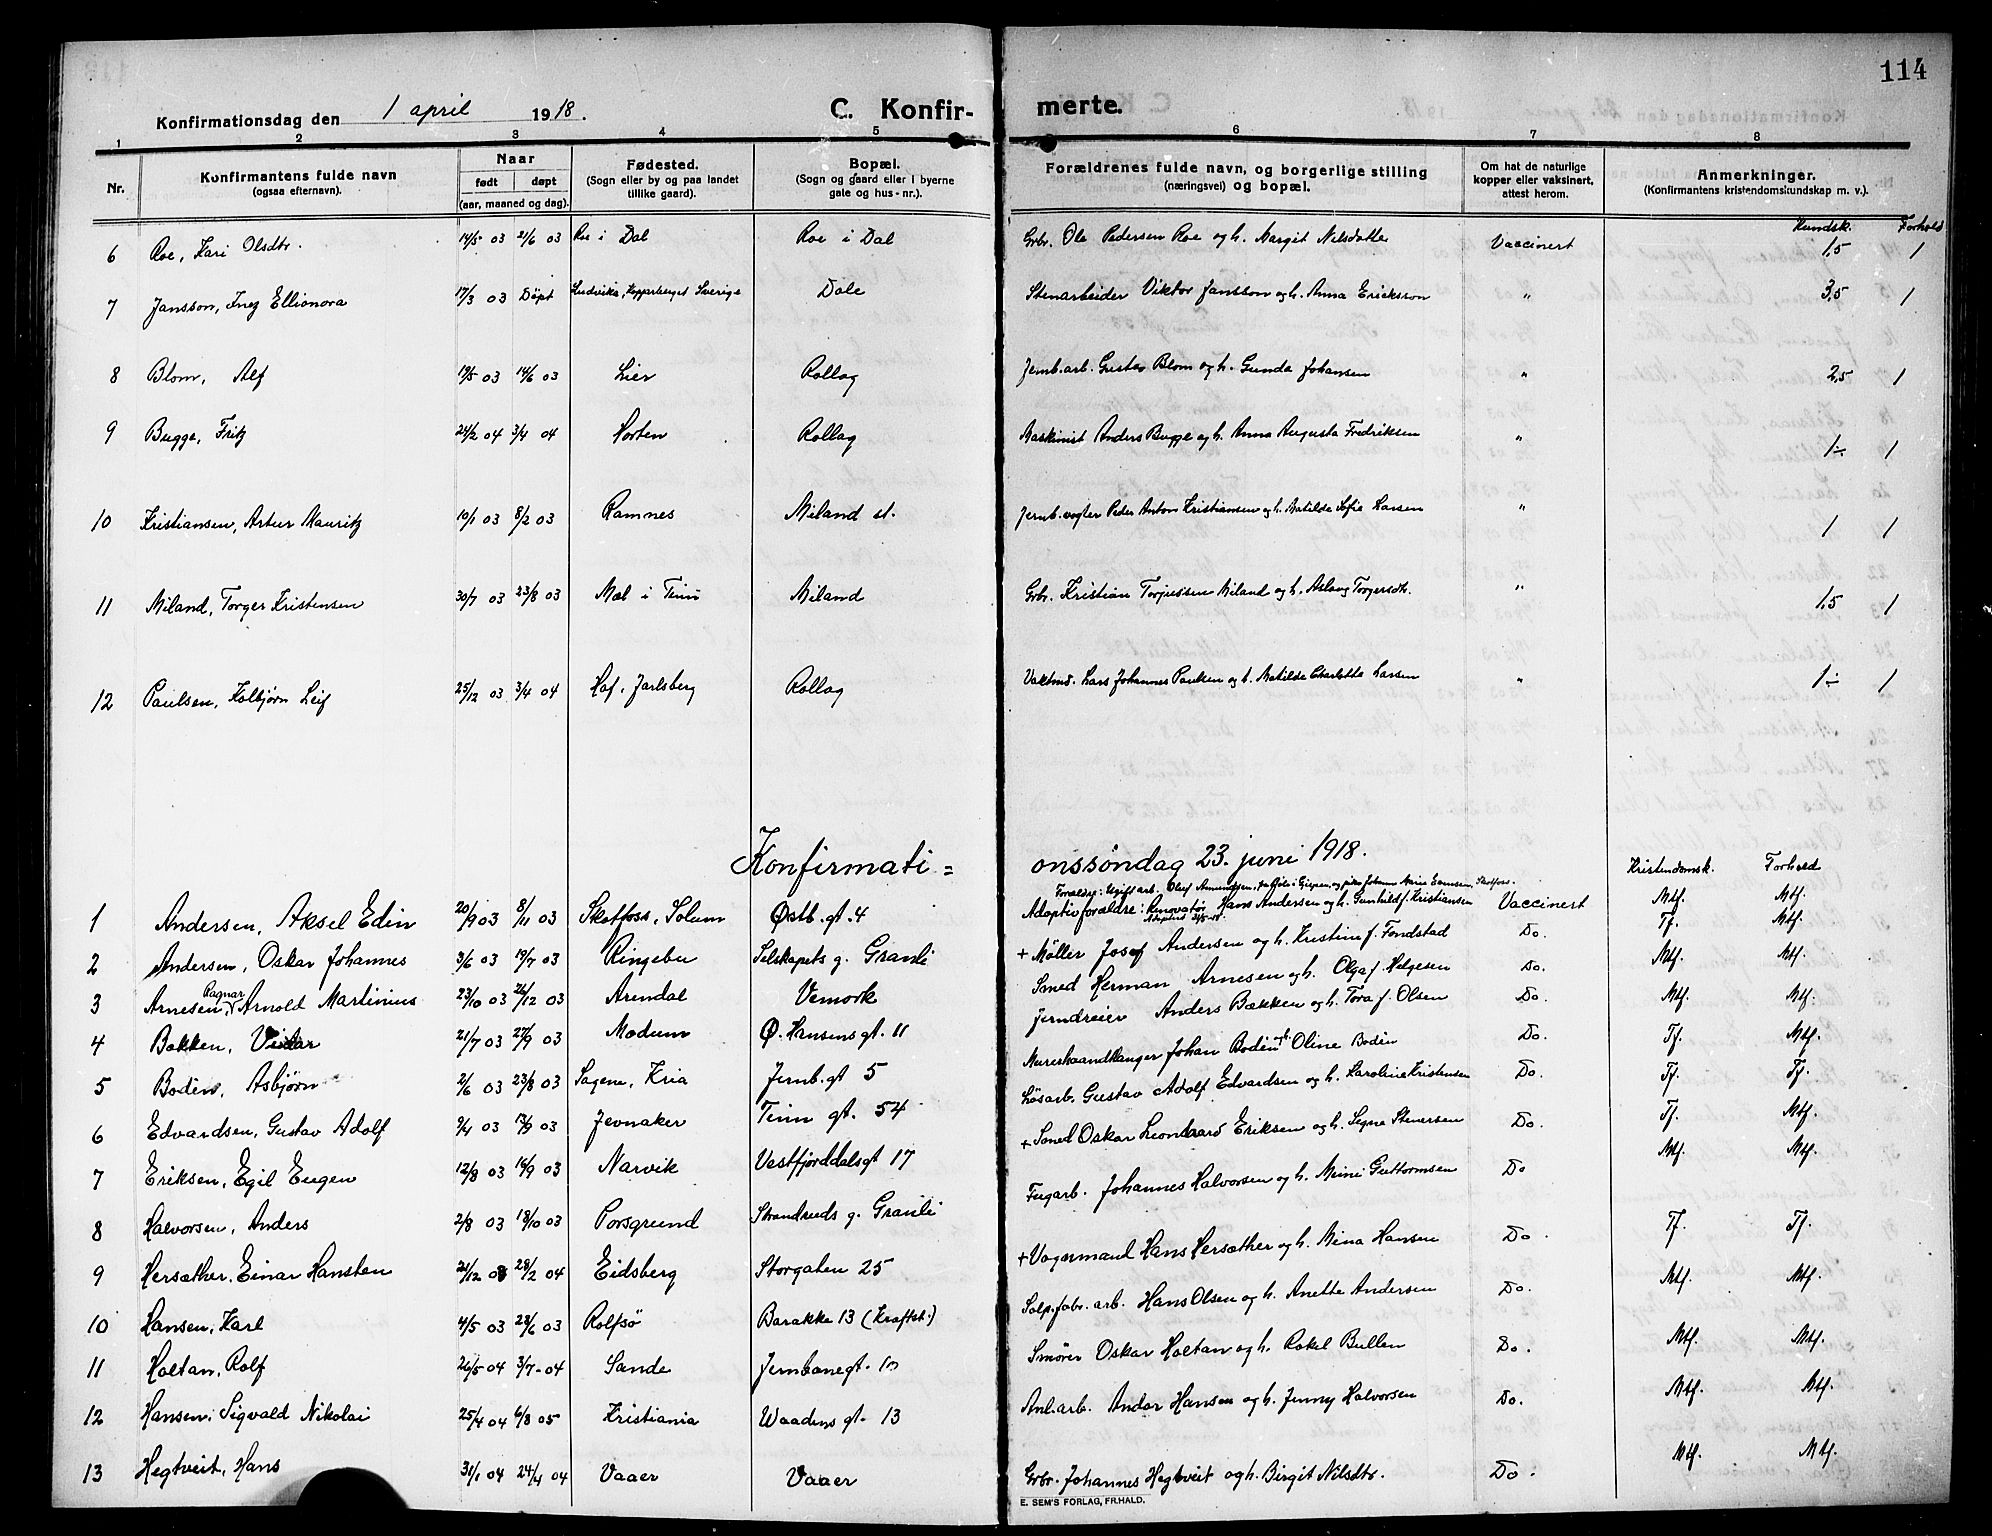 114
Konfirmationsdag den 1 april 1918. C. Konfirmerte.
1 2 3 4 5 6 7 8
Nr. Konfirmantens fulde navn (ogsaa efternavn). Naar født døpt (aar, maaned og dag). Fødested. (Sogn eller by og paa landet tillike gaard). Bopæl. (Sogn og gaard eller i byerne gate og hus-nr.). Forældrenes fulde navn, og borgerlige stilling (næringsvei) og bopæl. Om hat de naturlige kopper eller vaksinert, attest herom. Anmerkninger. (Konfirmantens kristendomskundskap m. v.).
Kundsk. Forhold
6 Roe, Kari Olsdtr. 14/5 03 21/6 03 Roe i Dal Roe i Dal Grbr. Ole Pedersen Roe og h. Margit Nilsdatter Vaccinert 1,5 1
7 Jansson, Inez Ellionora 17/3 03 Døpt Ludvika, Kopparberget Sverige Dale Stenarbeider Viktor Jansson og h. Anna Ericksson " 3,5 1
8 Blom, Alf 19/5 03 14/6 03 Lier Rollag Jernb.arb. Gustav Blom og h. Gunda Johansen " 2,5 1
9 Bugge, Fritz 24/2 04 3/4 04 Horten Rollag Maskinist Anders Bugge og h. Anna Augusta Fredriksen " 1÷ 1
10 Kristiansen, Artur Mauritz 10/1 03 8/2 03 Ramnes Miland st. Jernb.vogter Peder Anton Kristiansen og h. Matilde Sofie Larsen " 1 1
11 Miland, Torger Kristensen 30/7 03 23/8 03 Mæl i Tinn Miland Grbr. Kristian Torjussen Miland og h. Aslaug Torgersdtr. " 1,5 1
12 Paulsen, Kolbjørn Leif 25/12 03 3/4 04 Haf, Jarlsberg Rollag Vaktmd. Lars Johannes Paulsen og h. Matilde Charlotte Larsen " 1÷ 1
Konfirmationssøndag 23. juni 1918.
Kristendomsk. Forhold
Forældre: Ugift arb. Oluf Amundsen, Gjerpen, og pike Johanne Marie Evensen, Skotfoss.
1 Andersen, Aksel Edin 20/9 03 8/11 03 Skotfoss, Solum Østb. gt. 4 Adoptivforældre: Renovatør Hans Andersen og h. Gunhild f. Kristiansen Vaccinert Mtf. Mtf.
2 Andersen, Oskar Johannes 3/6 03 19/7 03 Ringebu Selskapets g. Granli + Møller Josef Andersen og h. Kristine f. Fondstad Do. Tf. Mtf.
3 Arnesen, Ragnar Arnold Martinius 23/10 03 26/12 03 Arendal Vemork Smed Herman Arnesen og h. Olga f. Helgesen Do. Mtf. Mtf.
4 Bakken, Vidar 21/7 03 27/9 03 Modum Ø. Hansens gt. 11 Jerndreier Anders Bækken og h. Tora f. Olsen Do. Mtf. Mtf.
5 Bodin, Asbjørn 2/6 03 23/8 03 Sagene, Kria Jernb. gt 5 Murerhaandlanger Johan Bodin og h. Oline Bodin Do. Tf. Mtf.
6 Edvardsen, Gustav Adolf 9/4 03 13/9 03 Jevnaker Tinn gt. 54 Løsarb. Gustav Adolf Edvardsen og h. Karoline Kristensen Do. Tf. Tf.
7 Eriksen, Egil Eugen 12/8 03 16/9 03 Narvik Vestfjorddalsgt 17 + Smed Oskar Leonhard Eriksen og h. Signe Stenersen Do. Tf. Mtf.
8 Halvorsen, Anders 2/8 03 18/10 03 Porsgrund Strandruds g. Granli Fugarb. Johannes Halvorsen og h. Mini Guttormsen Do Mtf. Mtf.
9 Hersæther, Einar Hansten 21/12 03 28/2 04 Eidsberg Storgaten 25 + Vognmand Hans Hersæther og h. Mina Hansen Do. Tf. Tf.
10 Hansen, Karl 4/5 03 28/6 03 Rolfsø Barakke 13 (Kraftst.) Salp.fabr. arb. Hans Olsen og h. Anette Andersen Do. Mtf. Mtf.
11 Holtan, Rolf 26/5 04 3/7 - 04 Sande Jernbanegt. 10 Smører Oskar Holtan og h. Rakel Bullen Do. Mtf. Mtf.
12 Hansen, Sigvald Nikolai 25/4 04 6/8 05 Kristiania Waadens gt. 13 Anl.arb. Andor Hansen og h. Jenny Halvorsen Do. Mtf. Mtf.
13 Hegtveit, Hans 31/1 04 24/4 04 Vaaer Vaaer Grbr. Johannes Hegtveit og h. Birgit Nilsdtr. Do. Mtf. Mtf.
E. SEM'S FORLAG, FR.HALD.